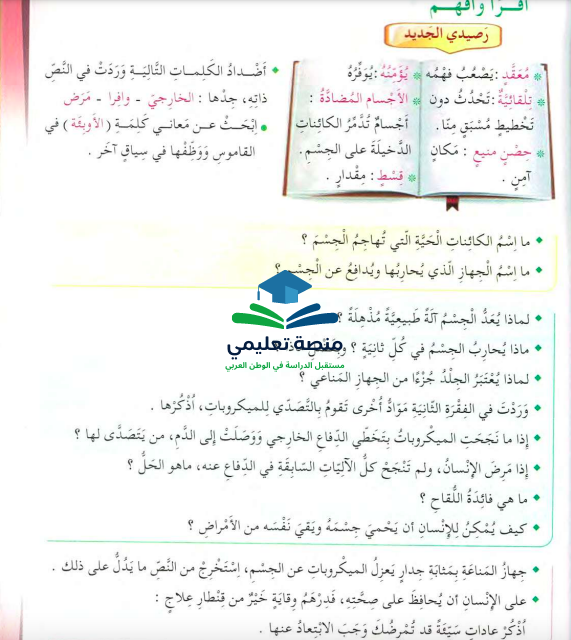 أقرأ وأفهم
رَصيدي الجَديد
مُعَقَّدٍ : يَصْعُبُ فَهْمُه
تِلْقائِيَّةٌ : تَحْدُثُ دون
تَخْطيطٍ مُسْبَقٍ مِنّا.
حِصْنٍ منيعٍ : مَكانٍ
آمِنٍ .
يُؤَمِّنُهُ : يُوَفِّرُهُ
الأَجْسام المُضادَّةُ :
أَجْسامٌ تُدَمِّرُ الكائِناتِ
الدَّخيلَةَ على الجِسْمِ.
قِسْطٍ : مِقْدارٍ .
أَضْـدادُ الكَلِمـاتِ التَّالِيَـةِ وَرَدَتْ في النَّصِّ
ذاتِهِ، جِدْها : الخارِجيّ - وافِرا - مَرَض
اِبْحَثْ عـن مَعانـي كَلِمَـةِ (الأَوبِئَة) في
القاموسِ وَوَظِّفْها في سِياقٍ آخَر .
ما اِسْمُ الكائِناتِ الْحَيَّةِ الّتي تُهاجِمُ الْجِسْمَ ؟
ما اِسْمُ الْجِهازِ الّذي يُحارِبُها ويُدافِعُ عن الْجِسْمِ ؟
لماذا يُعَدُّ الْجِسْمُ آلَةً طَبيعِيَّةً مُذْهِلَةً ؟
ماذا يُحارِبُ الجِسْمُ في كُلِّ ثانِيَةٍ ؟
لماذا يُعْتَبَرُ الجِلْدُ جُزْءًا من الجِهازِ المَناعي ؟
وَرَدَتْ في الفِقْرَةِ الثّانِيَةِ مَوَادُّ أُخْرى تَقومُ بِالتَّصَدّي لِلميكْروباتِ، اُذْكُرْها .
إذا ما نَجَحَتِ الميكْروباتُ بِتَخَطّي الدِّفاعِ الخارِجي وَوَصَلَتْ إلى الدَّمِ، من يَتَصَدَّى لها ؟
إذا مَرِضَ الإنْسانُ، ولم تَنْجَحْ كلُّ الآلِيّاتِ السّابِقَةِ في الدِّفاعِ عنه، ماهو الحَلُّ ؟
ما هي فائِدَةُ اللُّقاحِ ؟
كيف يُمْكِنُ لِلإنْسانِ أن يَحْمِيَ جِسْمَهُ ويَقيَ نَفْسَه من الأَمْراضِ ؟
جِهازُ المَناعَةِ بِمَثابَةِ جدارٍ يَعزِلُ الميكْروباتِ عن الجِسْم، اِسْتَخْرِجْ من النَّصِّ ما يَدُلُّ على ذلك .
على الإنْسانِ أن يُحافِظَ على صِحَّتِه، فَدِرْهَمُ وِقايَةٍ خَيْرٌ من قِنْطارِ عِلاجٍ :
اُذْكُرْ عاداتٍ سَيِّئَةً قد تُمْرِضُكَ وَجَبَ الابْتِعادُ عنها .
منصة تعليمي
مستقبل الدراسة في الوطن العربي